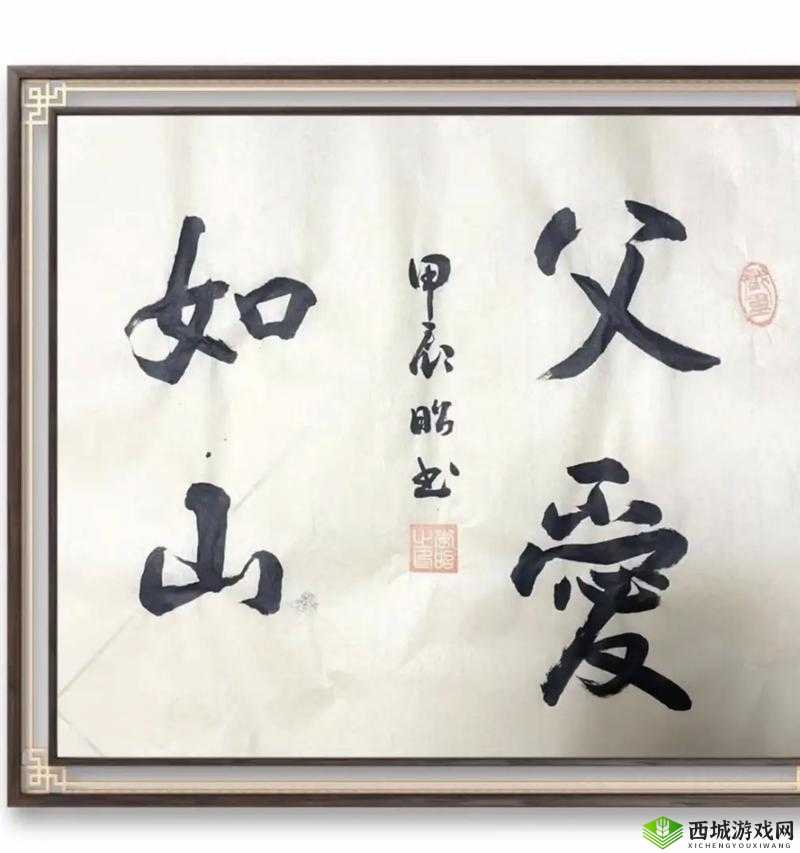 父愛
如山
甲辰昭书
西城游戏网
XICHENGYOUXIWANG